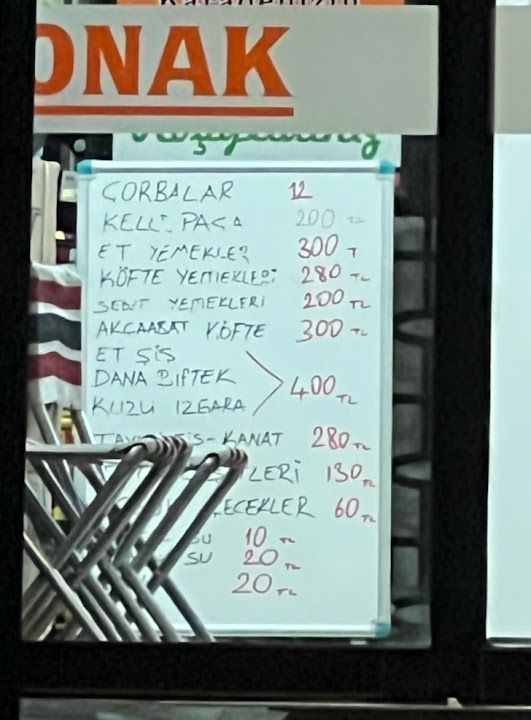 Karadenizin
ONAK
ÇORBALAR 12
KELLE PAÇA 200 TL
ET YEMEKLER 300 T
KÖFTE YEMEKLERİ 280 TL
SEBZT YEMEKLERİ 200 TL
AKCAABAT KÖFTE 300 TL
ET ŞİŞ
DANA BİFTEK 400 TL
KUZU IZGARA
KANAT 280 TL
LERİ 130 TL
ECEKLER 60 TL
SU 10 TL
SU 20 TL
20 TL